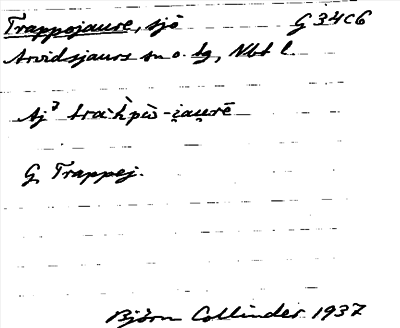 Trappojaure, sjö G 34 C6
Arvidsjaurs sn o. tg, Nbt l.
Aj³
G, Trappej.
Björn Collinder 1937